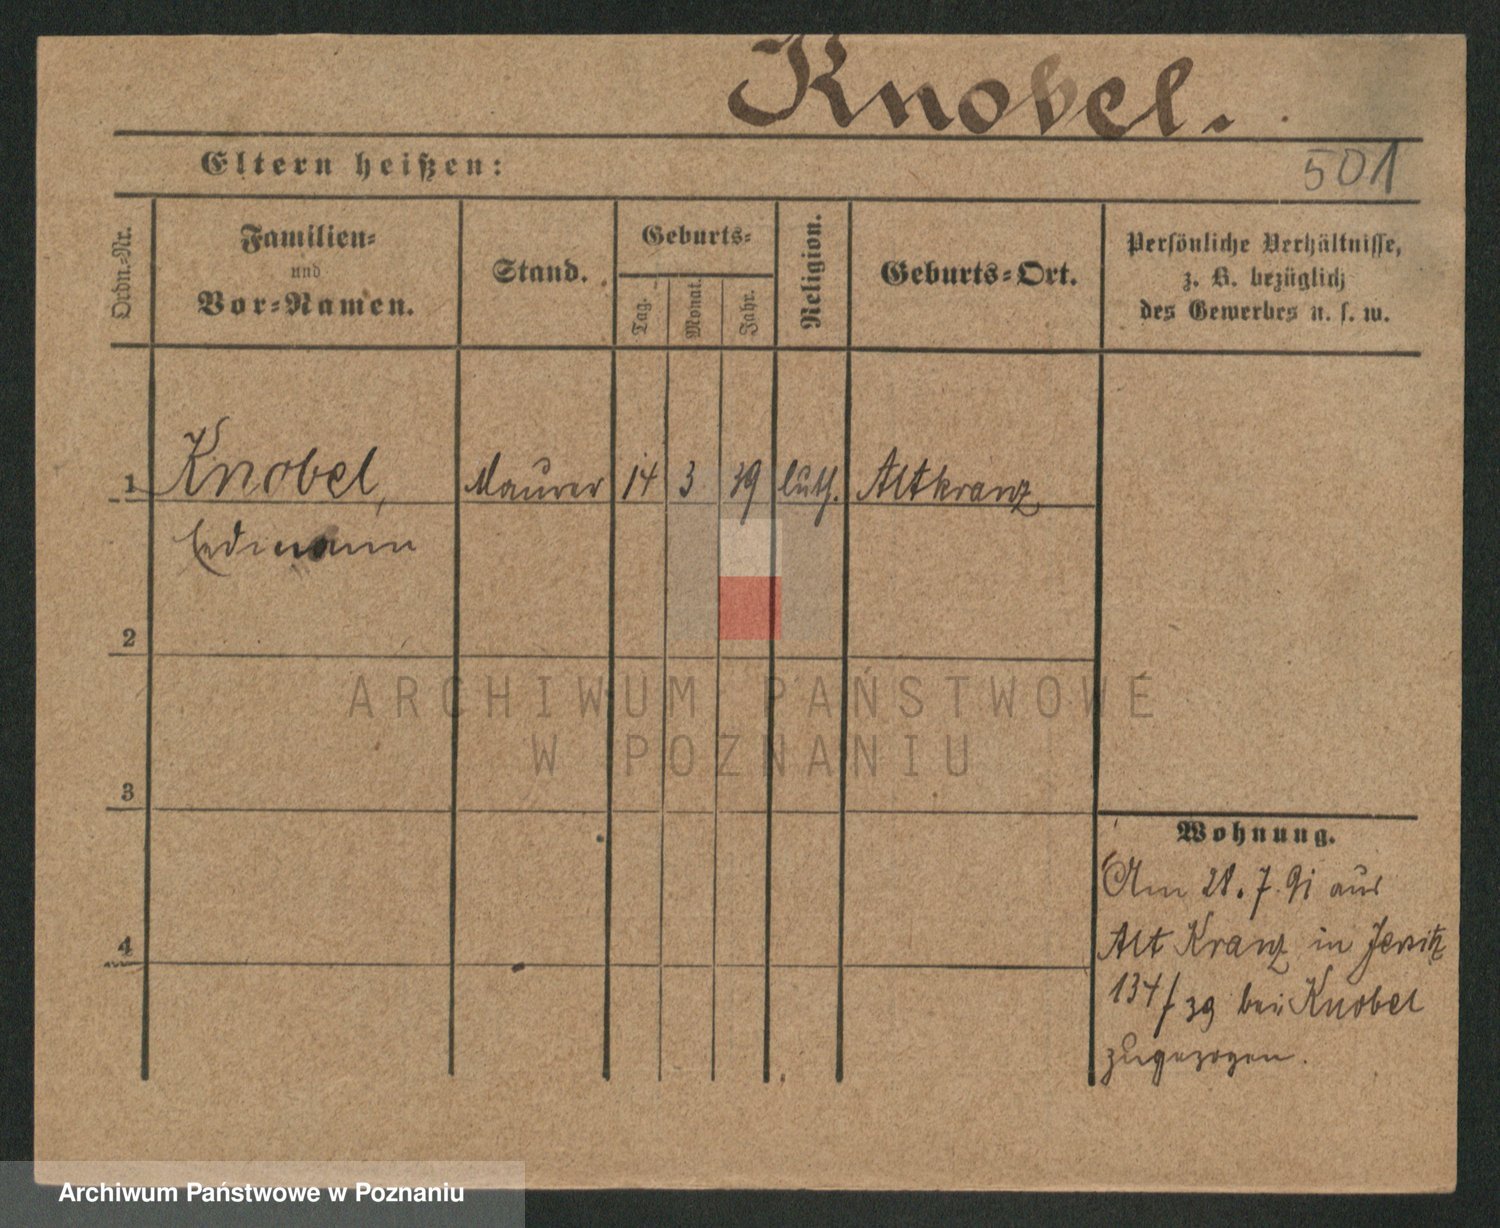 Knobel.
Eltern heißen:
501
Ordn.-Nr.
Familien-
und
Vor-Namen.
Stand.
Geburts-
Tag.
Monat.
Jahr.
Religion.
Geburts-Ort.
Persönliche Verhältnisse,
z. B. bezüglich
des Gewerbes u. s. w.
1 Knobel, Maurer 14 3 39 luth. Altkranz
Erdmann
2
3
4
Wohnung.
Am 28. 7. 91 aus
Alt Kranz in Jersitz
134/39 bei Knobel
zugezogen.
ARCHIWUM PAŃSTWOWE
W POZNANIU
Archiwum Państwowe w Poznaniu